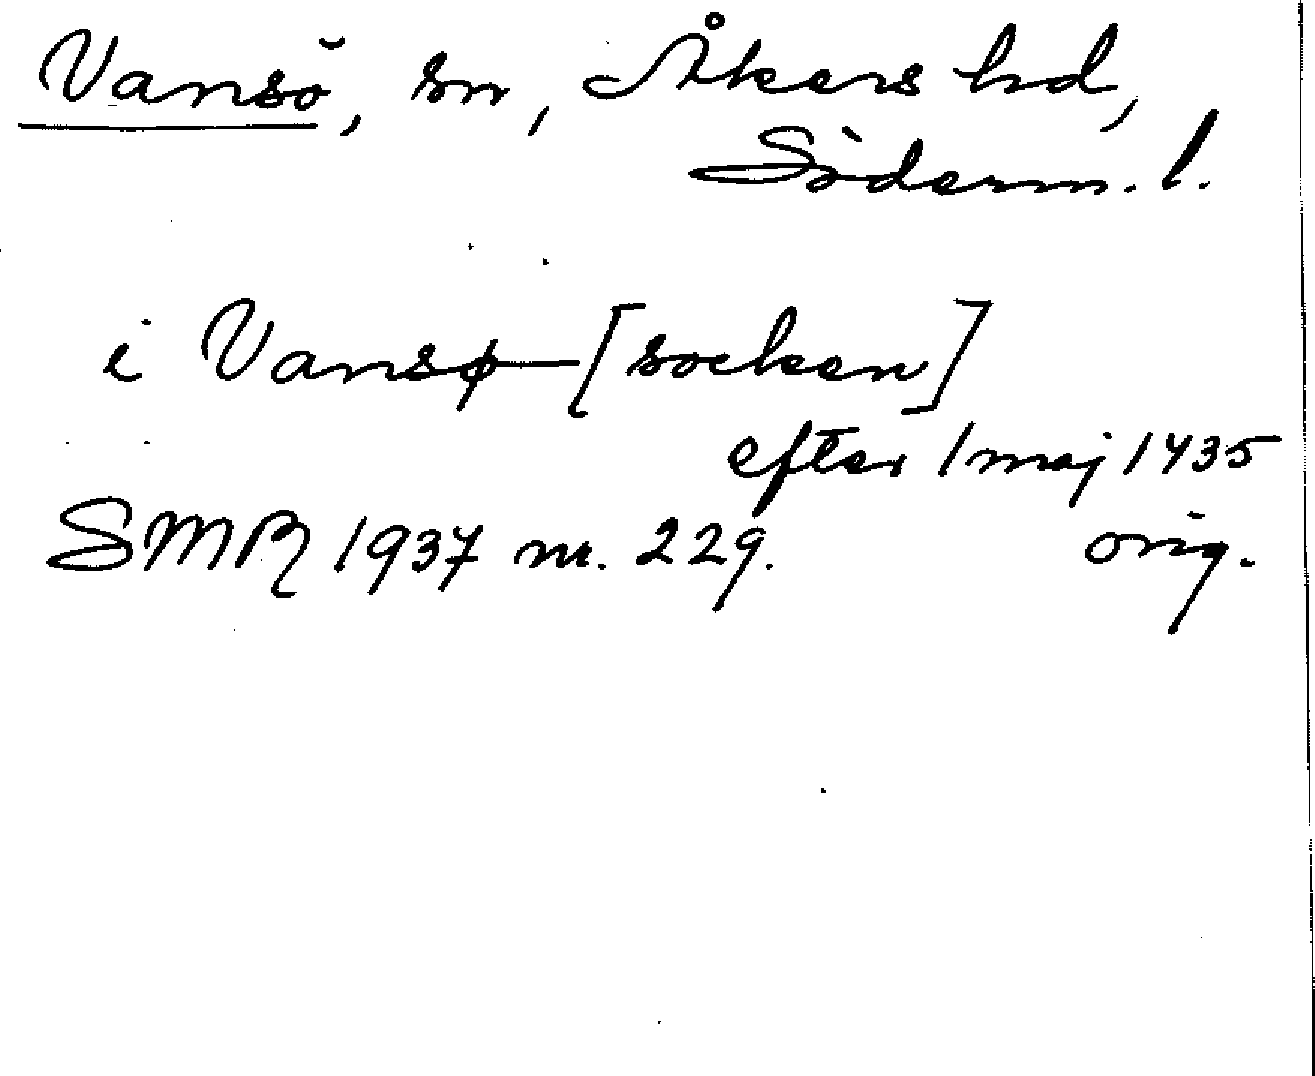 Vansö, sn, Åkers hd,
Söderm. l.
i Vansø [socken]
efter 1 maj 1435
SMR 1937 nr. 229. orig.